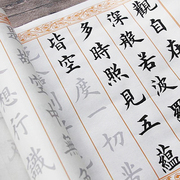 觀自
深般若波
多時照見五蘊
皆空度一切
想行識